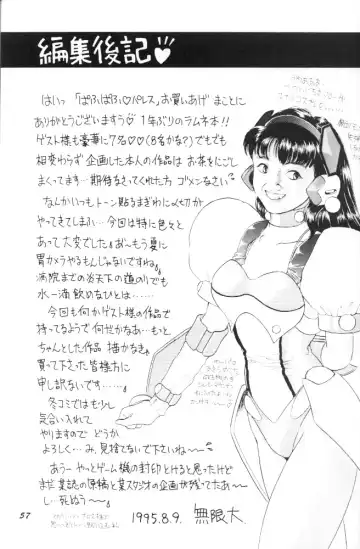 編集後記♡
はいっ 「ぱふぱふ♡パレス」お買いあげ まことに
ありがとうございますぅ♡ 1年ぶりのラムネ本!!
ゲスト様も豪華に7名♡♡(8名かな?)でもでも
相変わらず 企画した本人の作品は お茶をにごし
まくってます…期待なさってくれた方 ゴメンなさい
なんかいっつもトーン貼るまぎわに力
やってきてしまふ…今回は特に色々と
あって大変でした。お〜もう夏に
胃カメラやるもんじゃないですね。
病院までの炎天下の道のりでも
水一滴飲めないひとは……
今回も何かゲスト様の作品で
持ってるようで 何だかなあ…もっと
ちゃんとした作品 描かなきゃ
買って下さった皆様方に
申し訳ないです……。
冬コミではもう少し
気合い入れて
やりますので どうか
よろしく…み、見捨てないで下さいね〜
あうー やっとゲーム機の封印とけると思ったけど
まだ 某誌の原稿と某スタジオの企画が残ってたあ〜
し…死ぬう〜
1995.8.9. 無限大
57